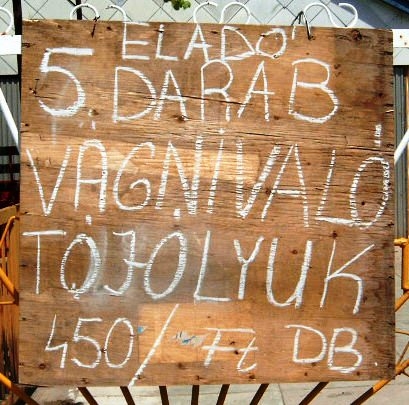 ELADÓ
5. DARAB
VÁGNIVALO
TOJOLYUK
450/ Ft DB.